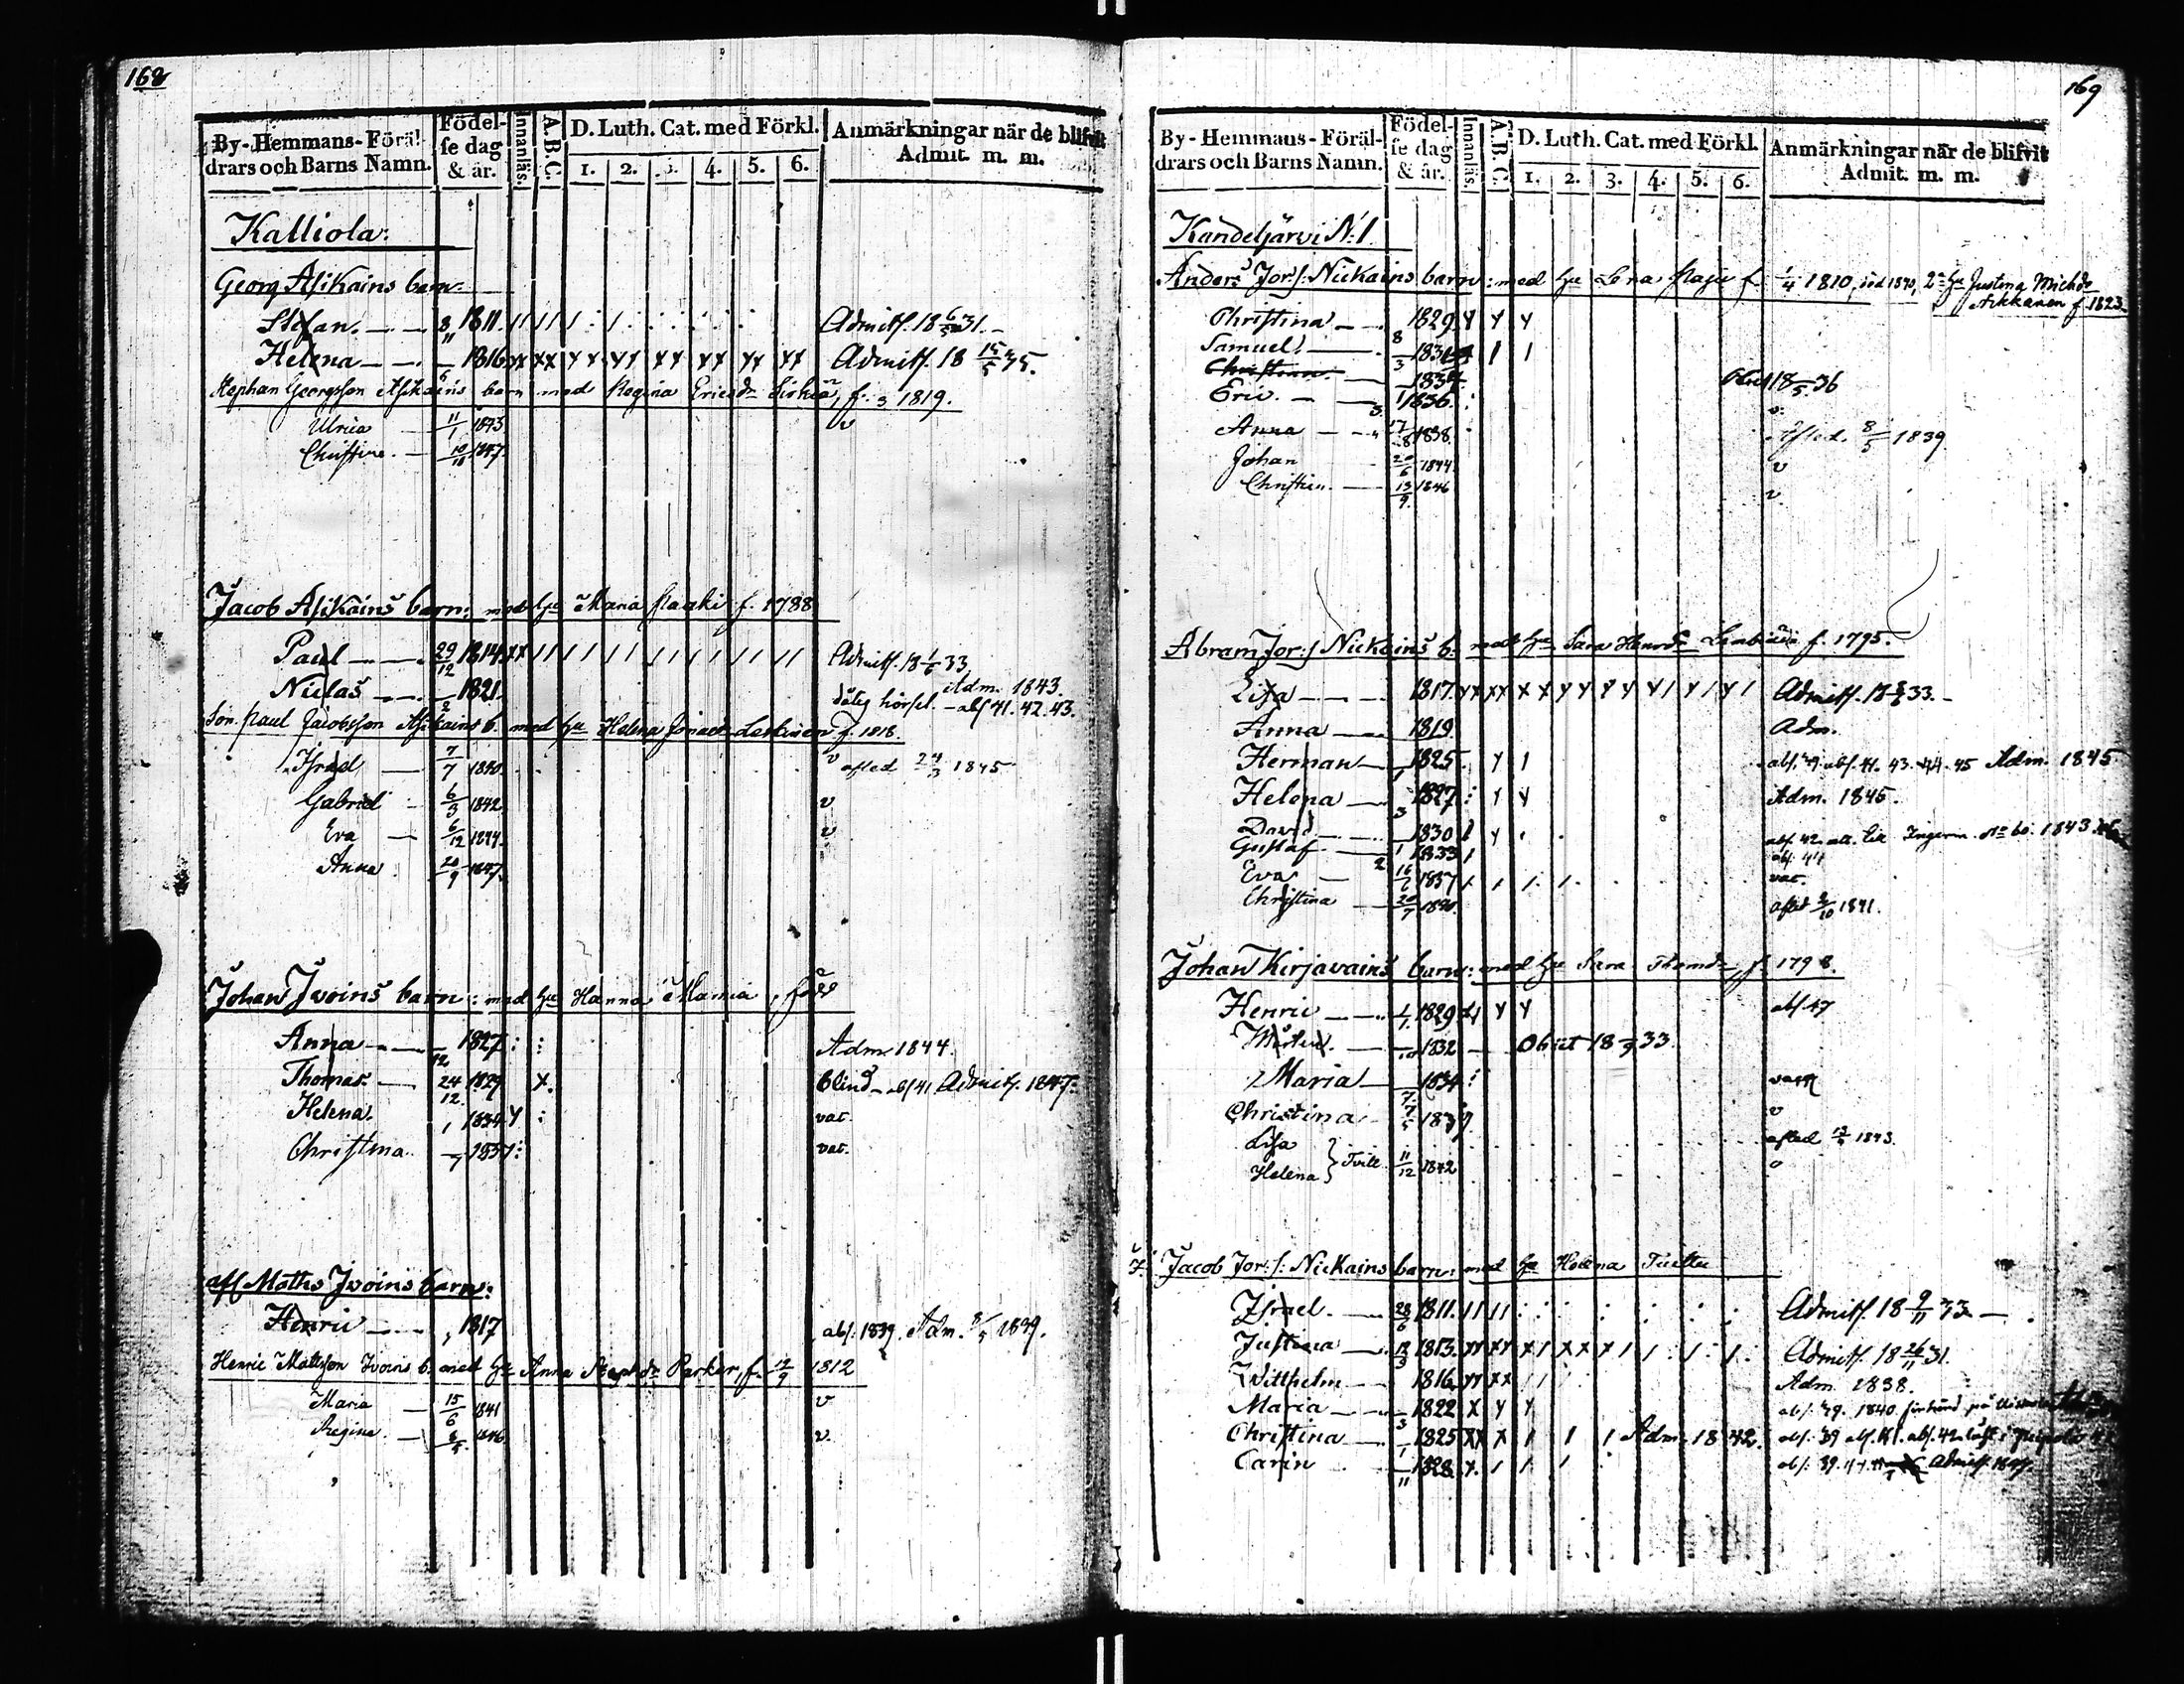 168
By-Hemmans-Föräl-
drars och Barns Namn.
Födel-
se dag
& år.
Innanläs.
A.B.C.
D. Luth. Cat. med Förkl.
1. 2. 3. 4. 5. 6.
Anmärkningar när de blifvit
Admit. m. m.
Kalliola:
Georg Asikains barn:
Stefan. 8/11 1811. Admitt. 18 6/5 31.
Helena 1816 Admitt. 18 15/5 35.
Stephan Georgsson Asikains barn med Regina Ericsdr f. 1819.
Ulrica 11/1 1843 v
Christina 10/10 1847.
Jacob Asikains barn: med hu Maria Paaki f. 1788
Paul 29/12 1814 Admitt. 18 1/6 33
Niclas 2 1821. dålig hörsel. Adm. 1843. abs 41. 42. 43.
Son. Paul Jacobsson Asikains b. med hu Helena Leskinen f. 1818.
Israel 7/7 1840 v afled 24/3 1845
Gabriel 6/3 1842 v
Eva 6/12 1844. v
Anna 20/9 1847.
Johan Ivoins barn: med hu Hanna Mamia, född
Anna 12 1827 Adm 1844.
Thomas 24/12 1829 x. blind abs 41 Admitt. 1847.
Helena. 1 1834 vac.
Christina. 7 1837 vac.
afl Maths Ivoins barn:
Henric 1817 abs. 1839. Adm. 8/5 1839.
Henric Mattsson Ivoins b. med hu Anna Stephdr Parker, f. 12/9 1812
Maria 15/6 1841 v
Regina 1846 v.
169
By-Hemmans-Föräl-
drars och Barns Namn.
Födel-
se dag
& år.
Innanläs.
A.B.C.
D. Luth. Cat. med Förkl.
1. 2. 3. 4. 5. 6.
Anmärkningar när de blifvit
Admit. m. m.
Kandeljärvi N:1.
Anders Jor:s: Nickains barn: med hu Lena f. 1/4 1810, död 1840, 2a hu Justina Michdr
Akkanen f. 1823
Christina 1829
Samuel. 8/3 1831
Christian. 1834 Obiit 18 36
Eric. 1836. v.
Anna 17/8 1838. Afled. 8/5 1839
Johan 20/6 1844. v
Christian. 13/9 1846 v
Abram Jor:s Nickains b: med hu Sara Henrdr f. 1795.
Lisa 1817 Admitt. 18 33.
Anna 1819. Adm.
Herman 1825. abs. 39. abs. 41. 43. 44. 45 Adm. 1845
Helena 3 1827 Adm. 1845.
David 1830 abs. 42 1843
Gustaf 1833 abs. 44
Eva 16/6 1837 vac.
Christina 20/7 1840. afled 2/10 1841.
Johan Kirjavains barn: med hu Sara Thomdr f. 1798.
Henric 1/1 1829 abs. 47
Mårten. 10 1832 Obiit 18 33
Maria 7 1834 vac
Christina 7/5 1837 v
Lisa afled 1843.
Helena } Tvill. 11/12 1842
Jacob Jor:s: Nickains barn: med hu Helena Tuittu
Israel. 28/6 1811. Admitt. 18 9/11 33
Justina 12/3 1813. Admitt. 18 26/11 31.
Willhelm 1816 Adm. 1838.
Maria 3 1822 abs. 39. 1840
Christina 1 1825 Adm. 1842. abs. 39 abs. 41. abs. 42
Carin 11 1828 abs. 39. Admitt. 1847.